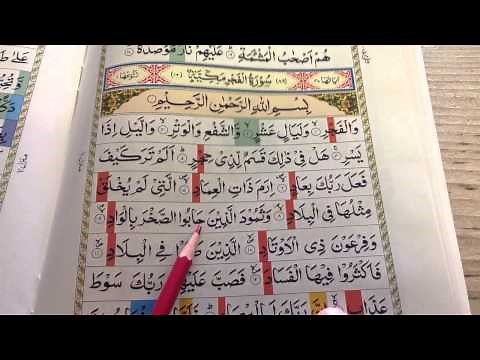 هُمْ اَصْحٰبُ الْمَشْـَٔمَةِ عَلَيْهِمْ نَارٌ مُّؤْصَدَةٌ
سُوْرَةُ الْفَجْرِ مَكِّيَّةٌ
بِسْمِ اللّٰهِ الرَّحْمٰنِ الرَّحِيْمِ
وَالْفَجْرِ وَلَيَالٍ عَشْرٍ وَّالشَّفْعِ وَالْوَتْرِ وَالَّيْلِ اِذَا
يَسْرِ هَلْ فِيْ ذٰلِكَ قَسَمٌ لِّذِيْ حِجْرٍ اَلَمْ تَرَ كَيْفَ
فَعَلَ رَبُّكَ بِعَادٍ اِرَمَ ذَاتِ الْعِمَادِ الَّتِيْ لَمْ يُخْلَقْ
مِثْلُهَا فِي الْبِلَادِ وَثَمُوْدَ الَّذِيْنَ جَابُوا الصَّخْرَ بِالْوَادِ
وَفِرْعَوْنَ ذِي الْاَوْتَادِ الَّذِيْنَ طَغَوْا فِي الْبِلَادِ
فَاَكْثَرُوْا فِيْهَا الْفَسَادَ فَصَبَّ عَلَيْهِمْ رَبُّكَ سَوْطَ
عَذَابٍ اِنَّ رَبَّكَ لَبِالْمِرْصَادِ